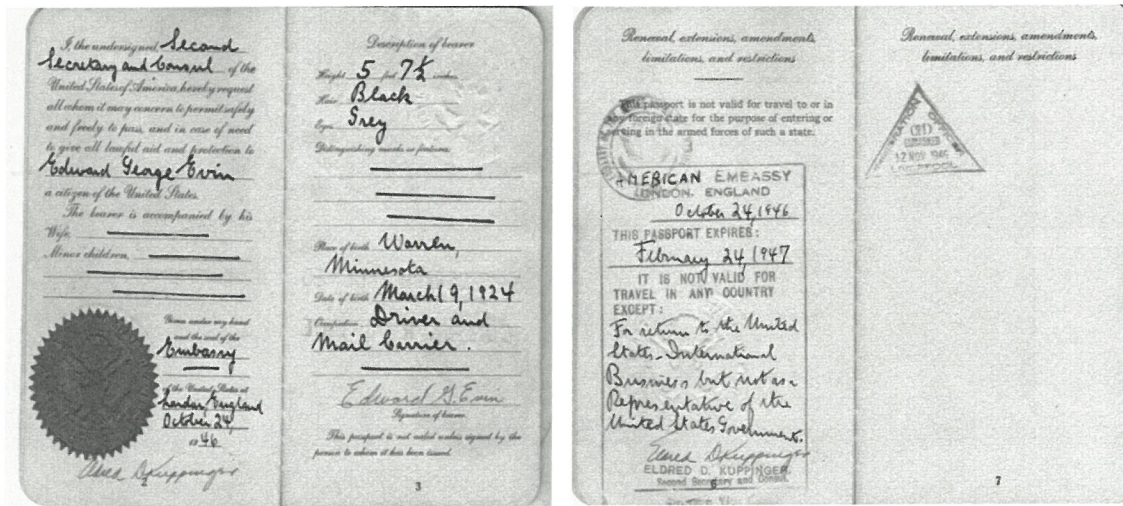 I, the undersigned Second
Secretary and Consul of the
United States of America, hereby request
all whom it may concern to permit safely
and freely to pass, and in case of need
to give all lawful aid and protection to
Edward George Evin
a citizen of the United States.
The bearer is accompanied by his
Wife,
Minor children,
Given under my hand
and the seal of the
Embassy
of the United States at
London, England
October 24,
1946
Eldred D. Kuppinger
2
Description of bearer
Height 5 feet 7 1/2 inches
Hair Black
Eyes Grey
Distinguishing marks or features:
Place of birth Warren,
Minnesota
Date of birth March 19, 1924
Occupation Driver and
Mail Carrier.
Edward G. Evin
Signature of bearer
This passport is not valid unless signed by the
person to whom it has been issued.
3
Renewal, extensions, amendments,
limitations, and restrictions
This passport is not valid for travel to or in
any foreign state for the purpose of entering or
serving in the armed forces of such a state.
AMERICAN EMBASSY
LONDON, ENGLAND
October 24, 1946
THIS PASSPORT EXPIRES:
February 24, 1947
IT IS NOT VALID FOR
TRAVEL IN ANY COUNTRY
EXCEPT:
For return to the United
States - International
Business but not as a
Representative of the
United States Government.
Eldred D. Kuppinger
ELDRED D. KUPPINGER
Second Secretary and Consul
6
Renewal, extensions, amendments,
limitations, and restrictions
IMMIGRATION OFFICER
12 NOV 1946
LIVERPOOL
7